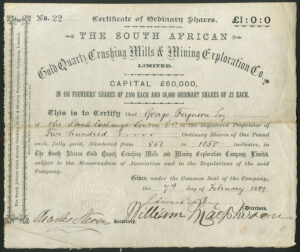 No: 22 Certificate of Ordinary Shares. £1:0:0
THE SOUTH AFRICAN
Gold Quartz Crushing Mills & Mining Exploration Co.,
LIMITED.
CAPITAL £60,000,
IN 100 FOUNDERS' SHARES OF £100 EACH AND 50,000 ORDINARY SHARES OF £1 EACH.
This is to Certify that George Ferguson Esq
of the Stock Exchange London E.C. is the Registered Proprietor of
Two hundred Ordinary Shares of One Pound
each, fully paid, Numbered from 851 to 1050 inclusive, in
The South African Gold Quartz Crushing Mills and Mining Exploration Company, Limited,
subject to the Memorandum of Association and to the Regulations of the said
Company.
Given under the Common Seal of the Company,
the 7th day of February 1889
Directors.
Secretary. William Macpherson